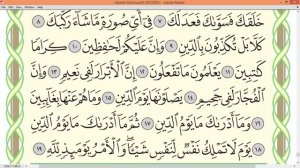 Mushaf Madina.pdf (SECURED) - Adobe Reader
خَلَقَكَ فَسَوَّىٰكَ فَعَدَلَكَ ٧ فِىٓ أَىِّ صُورَةٍ مَّا شَآءَ رَكَّبَكَ ٨
كَلَّا بَلْ تُكَذِّبُونَ بِٱلدِّينِ ٩ وَإِنَّ عَلَيْكُمْ لَحَٰفِظِينَ ١٠ كِرَامًا
كَٰتِبِينَ ١١ يَعْلَمُونَ مَا تَفْعَلُونَ ١٢ إِنَّ ٱلْأَبْرَارَ لَفِى نَعِيمٍ ١٣ وَإِنَّ
ٱلْفُجَّارَ لَفِى جَحِيمٍ ١٤ يَصْلَوْنَهَا يَوْمَ ٱلدِّينِ ١٥ وَمَا هُمْ عَنْهَا بِغَآئِبِينَ
١٦ وَمَآ أَدْرَىٰكَ مَا يَوْمُ ٱلدِّينِ ١٧ ثُمَّ مَآ أَدْرَىٰكَ مَا يَوْمُ ٱلدِّينِ
١٨ يَوْمَ لَا تَمْلِكُ نَفْسٌ لِّنَفْسٍ شَيْـًٔا وَٱلْأَمْرُ يَوْمَئِذٍ لِّلَّهِ ١٩